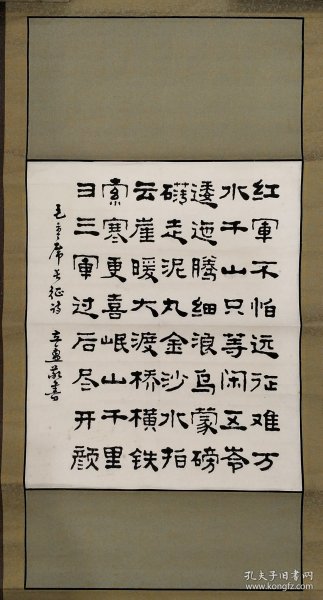 红軍不怕远征难万
水千山只等闲五岺
逶迤腾细浪乌蒙磅
礴走泥丸金沙水拍
云崖暖大渡桥横铁
索寒更喜岷山千里
彐三軍过后尽开颜
毛主席长征诗 書
孔夫子旧书网
www.kongfz.com